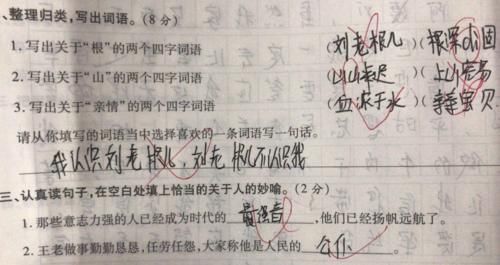 、整理归类,写出词语。(8分)
1. 写出关于“根”的两个四字词语 (刘老根儿)(根深 固)
2. 写出关于“山”的两个四字词语 (山山 迟)(上山容易)
3. 写出关于“亲情”的两个四字词语 (血浓于水)(亲亲宝贝)
请从你填写的词语当中选择喜欢的一条词语写一句话。
我认识刘老根儿,刘老根儿不认识我
三、认真读句子,在空白处填上恰当的关于人的妙喻。(2分)
1. 那些意志力强的人已经成为时代的 最强音 ,他们已经扬帆远航了。
2. 王老做事勤勤恳恳,任劳任怨,大家称他是人民的 公仆 。